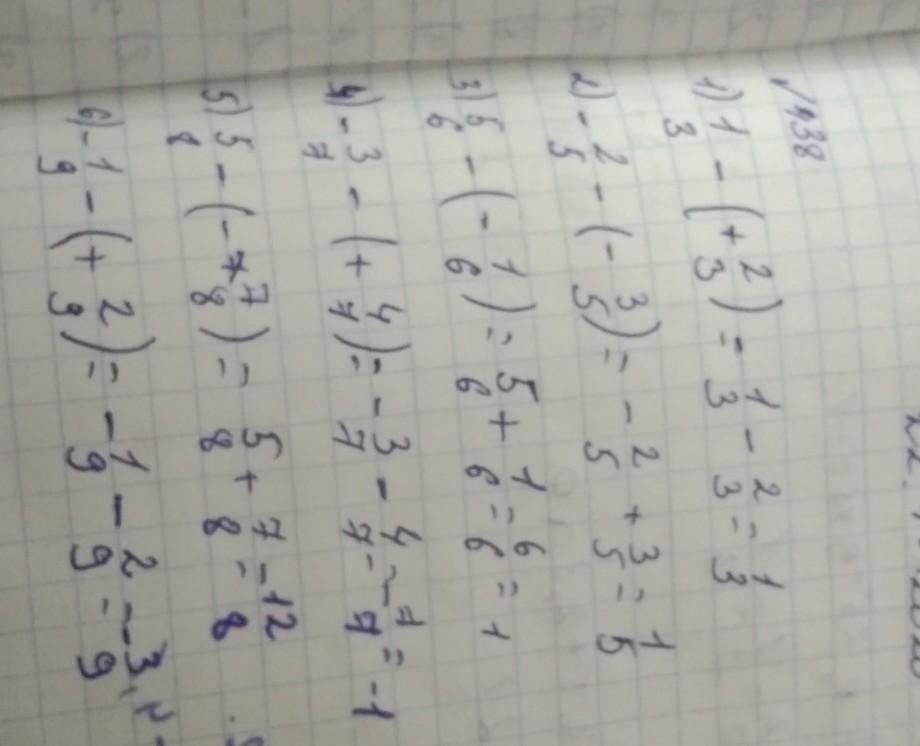 №438
1) 1/3 - (+ 2/3) = 1/3 - 2/3 = 1/3
2) - 2/5 - (- 3/5) = - 2/5 + 3/5 = 1/5
3) 5/6 - (- 1/6) = 5/6 + 1/6 = 6/6 = 1
4) - 3/7 - (+ 4/7) = - 3/7 - 4/7 = - 7/7 = -1
5) 5/8 - (- 7/8) = 5/8 + 7/8 = 12/8
6) - 1/9 - (+ 2/9) = - 1/9 - 2/9 = - 3/9